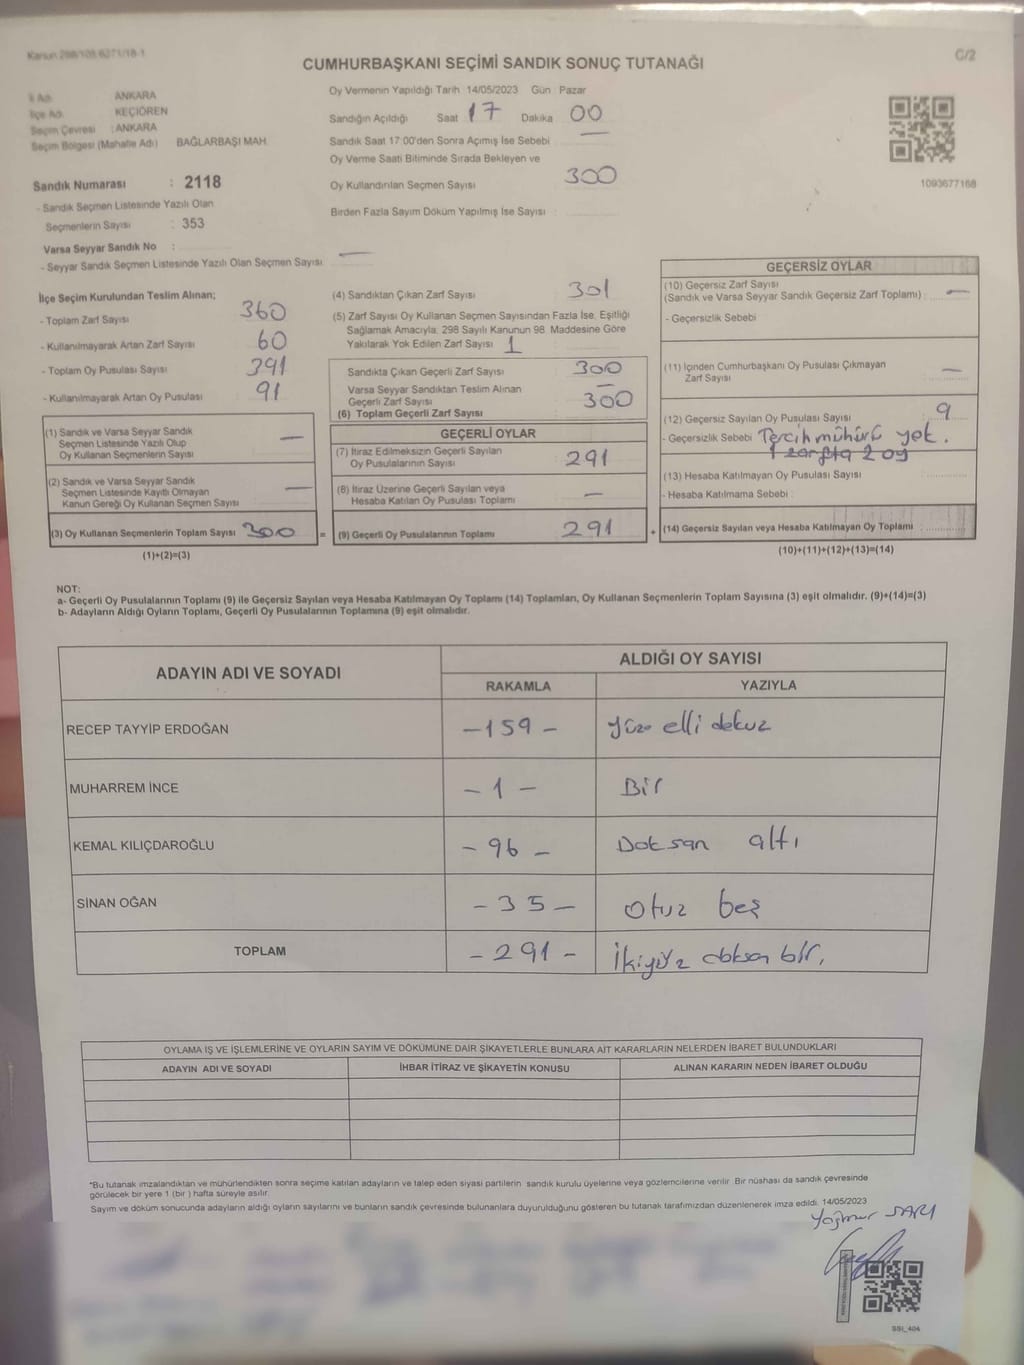 Kanun 298/105 6271/18-1
C/2
CUMHURBAŞKANI SEÇİMİ SANDIK SONUÇ TUTANAĞI
İl Adı : ANKARA
İlçe Adı : KEÇİÖREN
Seçim Çevresi : ANKARA
Seçim Bölgesi (Mahalle Adı) BAĞLARBAŞI MAH.
Sandık Numarası : 2118
- Sandık Seçmen Listesinde Yazılı Olan
Seçmenlerin Sayısı : 353
Varsa Seyyar Sandık No :
- Seyyar Sandık Seçmen Listesinde Yazılı Olan Seçmen Sayısı —
Oy Vermenin Yapıldığı Tarih 14/05/2023 Gün : Pazar
Sandığın Açıldığı Saat 17 Dakika 00
Sandık Saat 17:00'den Sonra Açımış İse Sebebi —
Oy Verme Saati Bitiminde Sırada Bekleyen ve
Oy Kullandırılan Seçmen Sayısı 300
Birden Fazla Sayım Döküm Yapılmış İse Sayısı
1093677168
İlçe Seçim Kurulundan Teslim Alınan;
- Toplam Zarf Sayısı 360
- Kullanılmayarak Artan Zarf Sayısı 60
- Toplam Oy Pusulası Sayısı 391
- Kullanılmayarak Artan Oy Pusulası 91
(1) Sandık ve Varsa Seyyar Sandık
Seçmen Listesinde Yazılı Olup
Oy Kullanan Seçmenlerin Sayısı —
(2) Sandık ve Varsa Seyyar Sandık
Seçmen Listesinde Kayıtlı Olmayan
Kanun Gereği Oy Kullanan Seçmen Sayısı —
(3) Oy Kullanan Seçmenlerin Toplam Sayısı 300 =
(1)+(2)=(3)
(4) Sandıktan Çıkan Zarf Sayısı 301
(5) Zarf Sayısı Oy Kullanan Seçmen Sayısından Fazla İse, Eşitliği
Sağlamak Amacıyla, 298 Sayılı Kanunun 98. Maddesine Göre
Yakılarak Yok Edilen Zarf Sayısı 1
Sandıkta Çıkan Geçerli Zarf Sayısı 300
Varsa Seyyar Sandıktan Teslim Alınan
Geçerli Zarf Sayısı —
(6) Toplam Geçerli Zarf Sayısı 300
GEÇERLİ OYLAR
(7) İtiraz Edilmeksizin Geçerli Sayılan
Oy Pusulalarının Sayısı 291
(8) İtiraz Üzerine Geçerli Sayılan veya
Hesaba Katılan Oy Pusulası Toplamı —
(9) Geçerli Oy Pusulalarının Toplamı 291 +
GEÇERSİZ OYLAR
(10) Geçersiz Zarf Sayısı
(Sandık ve Varsa Seyyar Sandık Geçersiz Zarf Toplamı) : —
- Geçersizlik Sebebi
(11) İçinden Cumhurbaşkanı Oy Pusulası Çıkmayan
Zarf Sayısı —
(12) Geçersiz Sayılan Oy Pusulası Sayısı 9
- Geçersizlik Sebebi Tercih mühürü yok.
1 zarfta 2 oy
(13) Hesaba Katılmayan Oy Pusulası Sayısı
- Hesaba Katılmama Sebebi :
(14) Geçersiz Sayılan veya Hesaba Katılmayan Oy Toplamı
(10)+(11)+(12)+(13)=(14)
NOT:
a- Geçerli Oy Pusulalarının Toplamı (9) ile Geçersiz Sayılan veya Hesaba Katılmayan Oy Toplamı (14) Toplamları, Oy Kullanan Seçmenlerin Toplam Sayısına (3) eşit olmalıdır. (9)+(14)=(3)
b- Adayların Aldığı Oyların Toplamı, Geçerli Oy Pusulalarının Toplamına (9) eşit olmalıdır.
ADAYIN ADI VE SOYADI ALDIĞI OY SAYISI
RAKAMLA YAZIYLA
RECEP TAYYİP ERDOĞAN -159- yüz elli dokuz
MUHARREM İNCE -1- Bir
KEMAL KILIÇDAROĞLU -96- Doksan altı
SİNAN OĞAN -35- Otuz beş
TOPLAM -291- İkiyüz doksan bir.
OYLAMA İŞ VE İŞLEMLERİNE VE OYLARIN SAYIM VE DÖKÜMÜNE DAİR ŞİKAYETLERLE BUNLARA AİT KARARLARIN NELERDEN İBARET BULUNDUKLARI
ADAYIN ADI VE SOYADI İHBAR İTİRAZ VE ŞİKAYETİN KONUSU ALINAN KARARIN NEDEN İBARET OLDUĞU
*Bu tutanak imzalandıktan ve mühürlendikten sonra seçime katılan adayların ve talep eden siyasi partilerin sandık kurulu üyelerine veya gözlemcilerine verilir. Bir nüshası da sandık çevresinde
görülecek bir yere 1 (bir ) hafta süreyle asılır.
Sayım ve döküm sonucunda adayların aldığı oyların sayılarını ve bunların sandık çevresinde bulunanlara duyurulduğunu gösteren bu tutanak tarafımızdan düzenlenerek imza edildi. 14/05/2023
Yağmur SARI
SSI_404